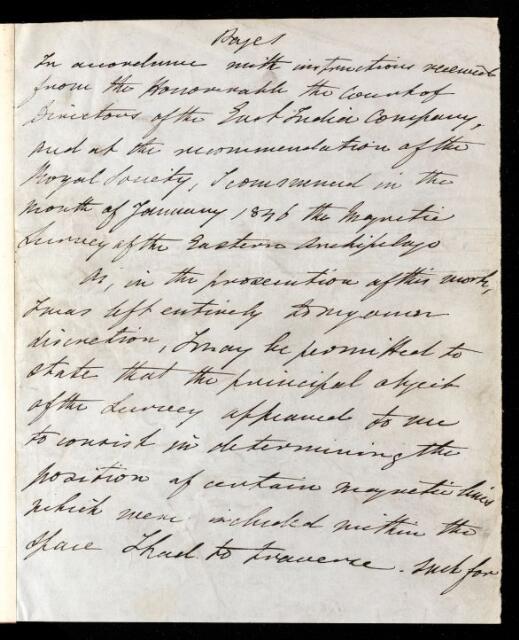 Page 1
In accordance with instructions received
from the Honourable the Court of
Directors of the East India Company,
and at the recommendation of the
Royal Society, I commenced in the
month of January 1846 the Magnetic
Survey of the Eastern Archipelago
As, in the prosecution of this work,
I was left entirely to my own
discretion, I may be permitted to
state that the principal object
of the Survey appeared to me
to consist in determining the
position of certain magnetic lines
which were included within the
space I had to traverse. Such for